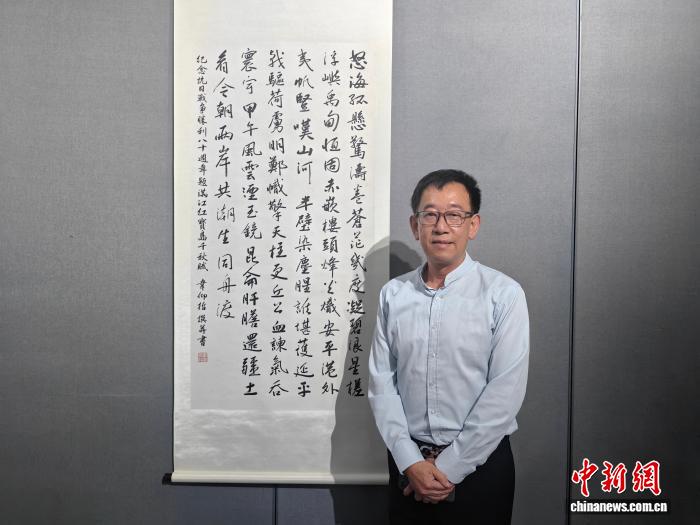 怒海孤懸驚濤卷蒼茫幾度凝碧浪星槎
浮嶼禹甸恆固赤嵌樓頭烽火熾安平港外
夷帆豎嘆山河半壁染塵腥誰堪護延平
戟驅荷虜明鄭幟擎天柱更丘公血諫氣吞
寰宇甲午風雲湮玉鏡昆侖肝膽還疆土
看今朝兩岸共潮生同舟渡
紀念抗日戰爭勝利八十週年題滿江紅寶島千秋賦 韋仰 撰並書
中新网
www.chinanews.com.cn